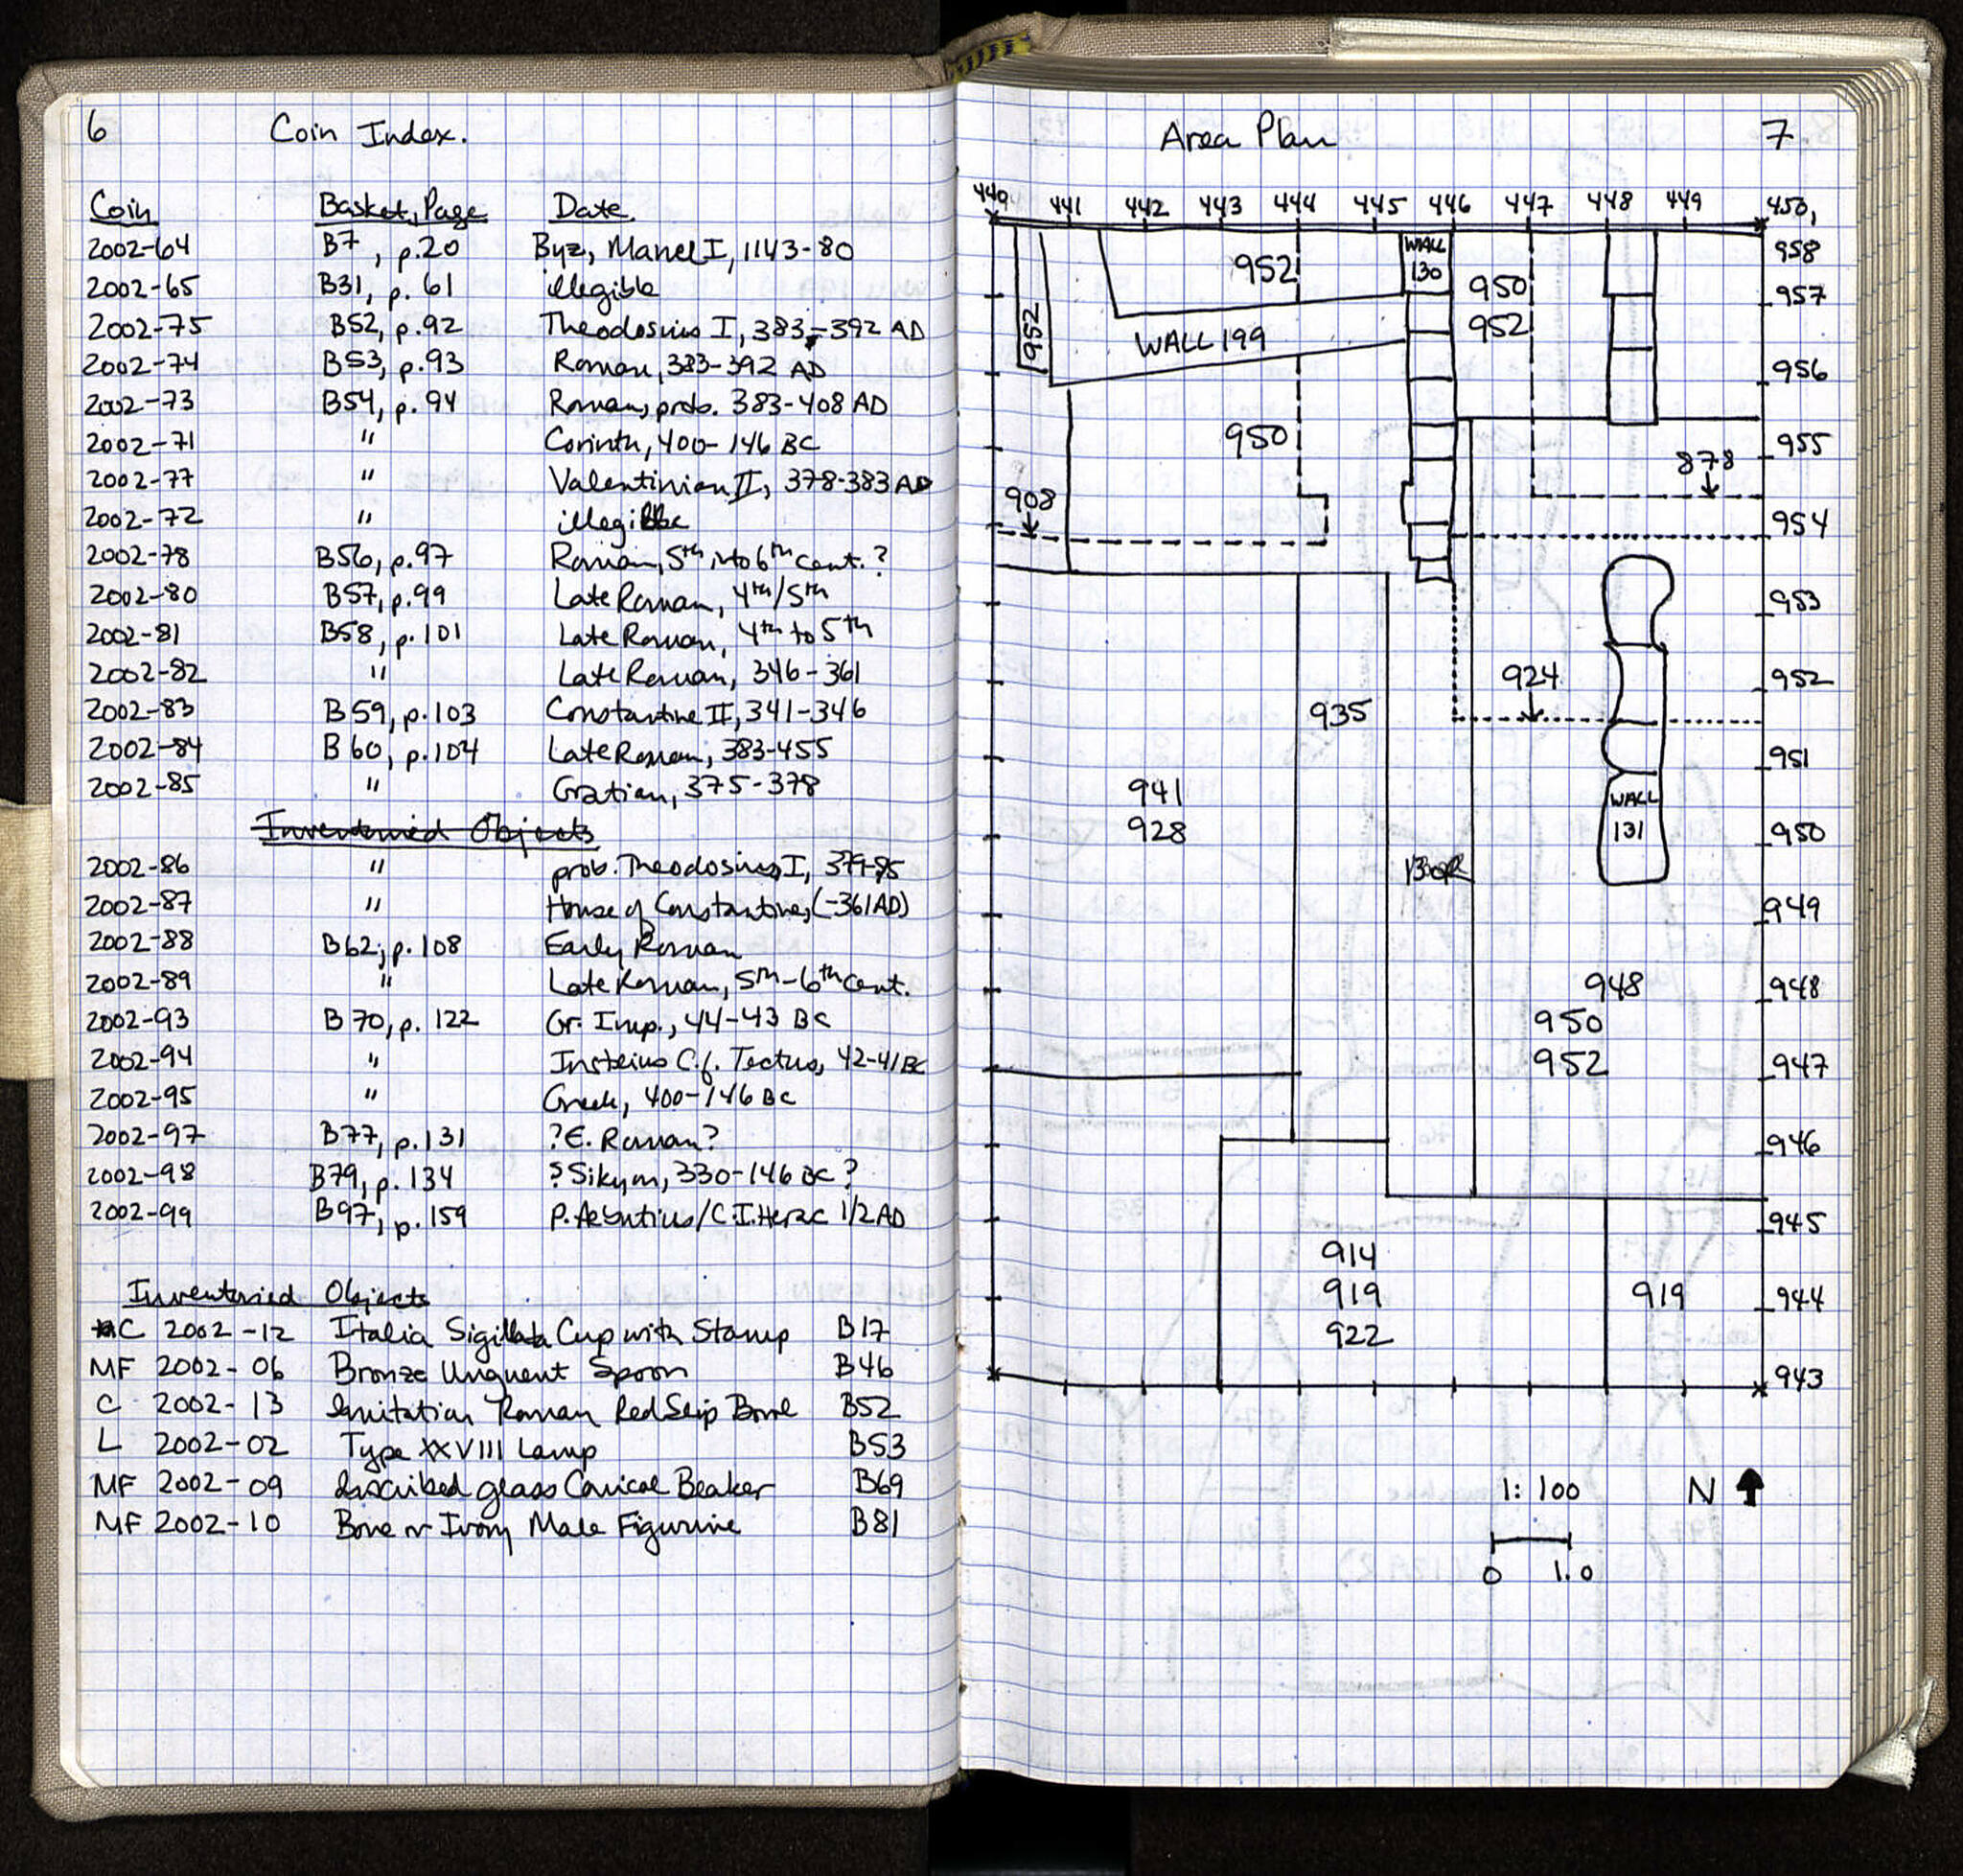 6 Coin Index.
Coin Basket, Page Date
2002-64 B7, p.20 Byz, Manel I, 1143-80
2002-65 B31, p. 61 illegible
2002-75 B52, p.92 Theodosius I, 383-392 AD
2002-74 B53, p.93 Roman, 383-392 AD
2002-73 B54, p.94 Roman, prob. 383-408 AD
2002-71 " Corinth, 400-146 BC
2002-77 " Valentinian II, 378-383 AD
2002-72 " illegible
2002-78 B56, p.97 Roman, 5th to 6th cent.?
2002-80 B57, p.99 Late Roman, 4th/5th
2002-81 B58, p.101 Late Roman, 4th to 5th
2002-82 " Late Roman, 346-361
2002-83 B59, p.103 Constantine II, 341-346
2002-84 B60, p.104 Late Roman, 383-455
2002-85 " Gratian, 375-378
Inventoried Objects
2002-86 " prob. Theodosius I,
2002-87 " House of Constantine, (-361AD)
2002-88 B62, p.108 Early Roman
2002-89 " Late Roman, 5th-6th cent.
2002-93 B70, p. 122 Gr. Imp., 44-43 BC
2002-94 " Insteius C.f. Tectus, 42-41 BC
2002-95 " Greek, 400-146 BC
2002-97 B77, p.131 ?E. Roman?
2002-98 B79, p. 134 ? Sikyon, 330-146 BC ?
2002-99 B97, p.159 P. Aebutius/C.I.Herac 1/2 AD
Inventoried Objects
C 2002-12 Italia Sigillata Cup with Stamp B17
MF 2002-06 Bronze Unguent Spoon B46
C 2002-13 Imitation Roman Red Slip Bowl B52
L 2002-02 Type XXVIII Lamp B53
MF 2002-09 Inscribed glass Conical Beaker B69
MF 2002-10 Bone or Ivory Male Figurine B81
Area Plan 7
440 441 442 443 444 445 446 447 448 449 450,
958
952 WALL 130 950
957
952 WALL 199 952
956
950 955
878
908
954
953
924 952
935
951
941 WALL
928 131 950
949
948 948
950
952 947
946
945
914
919 919 944
922
943
1:100 N
0 1.0